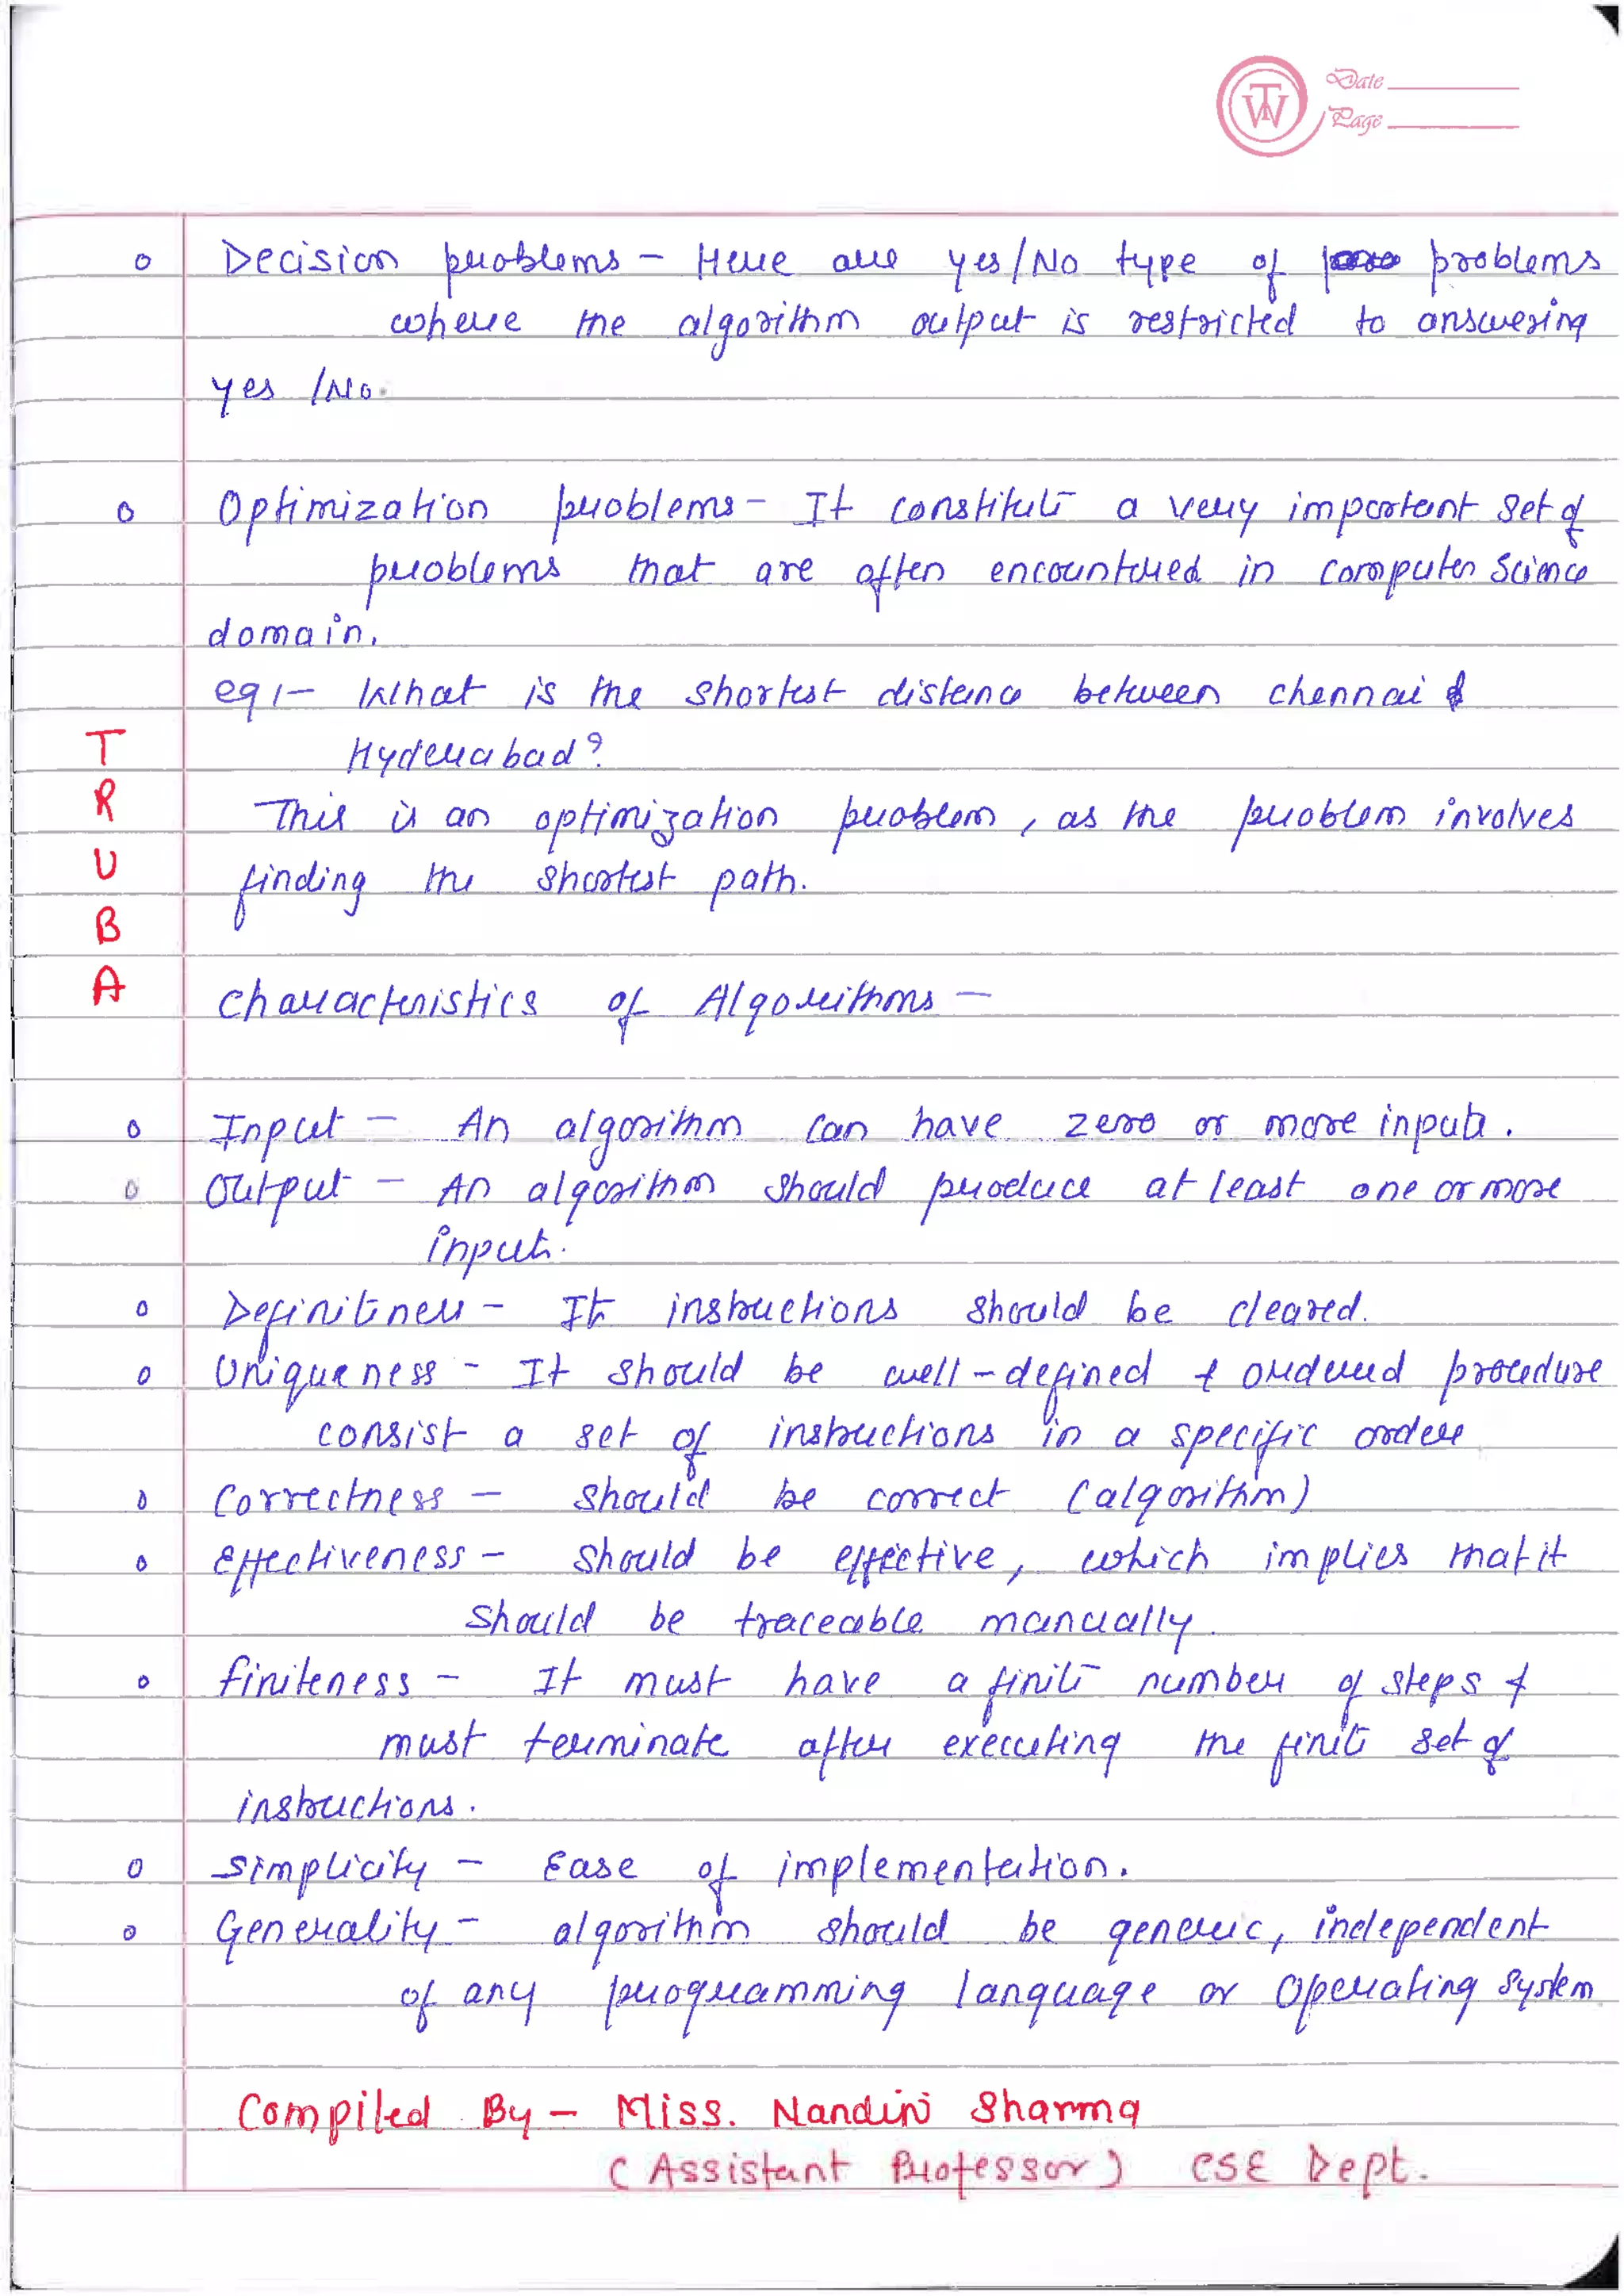 TW Date
Page
o Decision problems - Here are yes/No type of problems
where the algorithm output is restricted to answering
yes /No.
o Optimization problems - It constitute a very important set of
problems that are often encountered in computer Science
domain.
eg :- What is the shortest distance between chennai &
Hyderabad?
This is an optimization problem, as the problem involves
finding the shortest path.
T
R
U
B
A
Characteristics of Algorithms -
o Input - An algorithm can have zero or more inputs.
o Output - An algorithm should produce at least one or more
inputs.
o Definitiness - It instructions should be cleared.
o Uniqueness - It should be well-defined & ordered procedure
consist a set of instructions in a specific order
o Correctness - should be correct (algorithm)
o Effectiveness - should be effective, which implies that it
should be traceable manually.
o finiteness - It must have a finite number of steps &
must terminate after executing the finite set of
instructions.
o Simplicity - Ease of implementation.
o Generality - algorithm should be generic, independent
of any programming language or Operating System
Compiled By - Miss. Nandini Sharma
(Assistant Professor) CSE Dept.